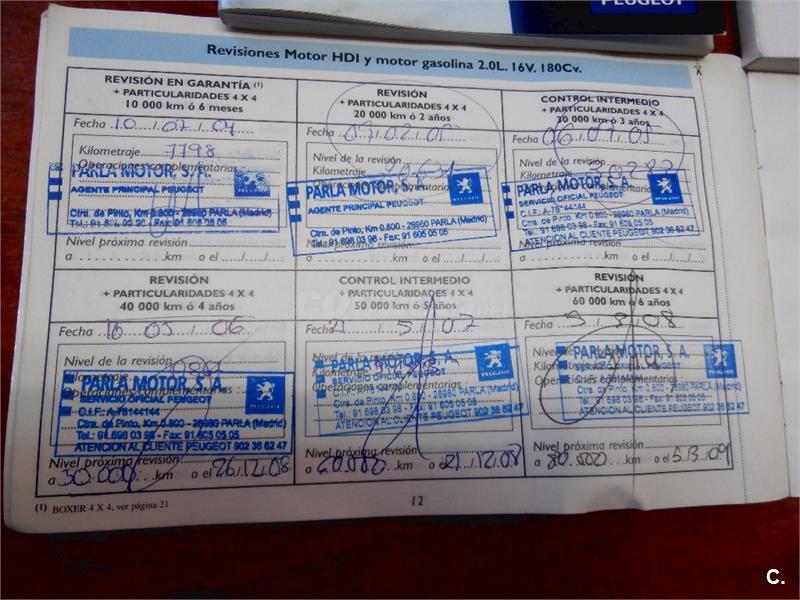 PEUGEOT
Revisiones Motor HDI y motor gasolina 2.0L. 16V. 180Cv.
REVISIÓN EN GARANTÍA (1)
+ PARTICULARIDADES 4 X 4
10 000 km ó 6 meses
Fecha 10 / 02 / 04
Kilometraje 7798
Operaciones complementarias
PARLA MOTOR, S. A.
AGENTE PRINCIPAL PEUGEOT
Ctra. de Pinto, Km 0.800 - 28980 PARLA (Madrid)
Nivel próxima revisión
a km o el / /
REVISIÓN
+ PARTICULARIDADES 4 X 4
20 000 km ó 2 años
Fecha 09 / 02 / 05
Nivel de la revisión
Kilometraje
PARLA MOTOR, S.
AGENTE PRINCIPAL PEUGEOT
PEUGEOT
Ctra. de Pinto, Km 0.800 - 28980 PARLA (Madrid)
Tel.: 91 698 03 98 - Fax: 91 605 05 05
Nivel próxima revisión
a km o el / /
CONTROL INTERMEDIO
+ PARTICULARIDADES 4 X 4
30 000 km ó 3 años
Fecha 06 / 07 / 05
Nivel de la revisión
Kilometraje
PARLA MOTOR, S. A.
SERVICIO OFICIAL PEUGEOT
C.I.F.: A-78144144
Ctra. de Pinto, Km 0.800 - 28980 PARLA (Madrid)
Tel.: 91 698 03 98 - Fax: 91 605 05 05
ATENCION AL CLIENTE PEUGEOT 902 36 62 47
Nivel próxima revisión
a km o el / /
REVISIÓN
+ PARTICULARIDADES 4 X 4
40 000 km ó 4 años
Fecha 16 05 06
Nivel de la revisión
Kilometraje
PARLA MOTOR, S. A.
SERVICIO OFICIAL PEUGEOT
C.I.F.: A-78144144
PEUGEOT
Ctra. de Pinto, Km 0.800 - 28980 PARLA (Madrid)
Tel.: 91 698 03 98 - Fax: 91 605 05 05
ATENCION AL CLIENTE PEUGEOT 902 36 62 47
Nivel próxima revisión
a 50.000 km o el 26/12/08
CONTROL INTERMEDIO
+ PARTICULARIDADES 4 X 4
50 000 km ó 5 años
Fecha / 5 / 07
Nivel de la revisión
Kilometraje
PARLA MOTOR, S. A.
SERVICIO OFICIAL PEUGEOT
Operaciones complementarias
Ctra. de Pinto, Km 0.800 - 28980 PARLA (Madrid)
Tel.: 91 698 03 98 - Fax: 91 605 05 05
ATENCION AL CLIENTE PEUGEOT 902 36 62 47
Nivel próxima revisión
a 60.000 km o el 21/12/08
REVISIÓN
+ PARTICULARIDADES 4 X 4
60 000 km ó 6 años
Fecha 08
Nivel de la revisión
PARLA MOTOR, S. A.
SERVICIO OFICIAL PEUGEOT
Operaciones complementarias
Ctra. de Pinto, Km 0.800 - 28980 PARLA (Madrid)
Tel.: 91 698 03 98 - Fax: 91 605 05 05
ATENCION AL CLIENTE PEUGEOT 902 36 62 47
Nivel próxima revisión
a 80.000 km o el 09
(1) BOXER 4 X 4, ver página 21
12
C.